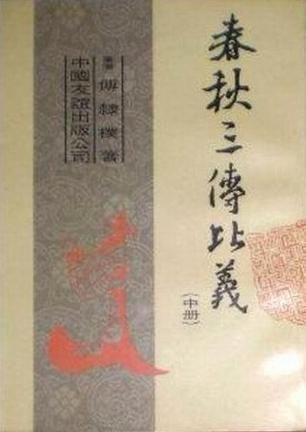 春秋三傳比義
(中册)
臺灣 傅隸樸著
中國友誼出版公司